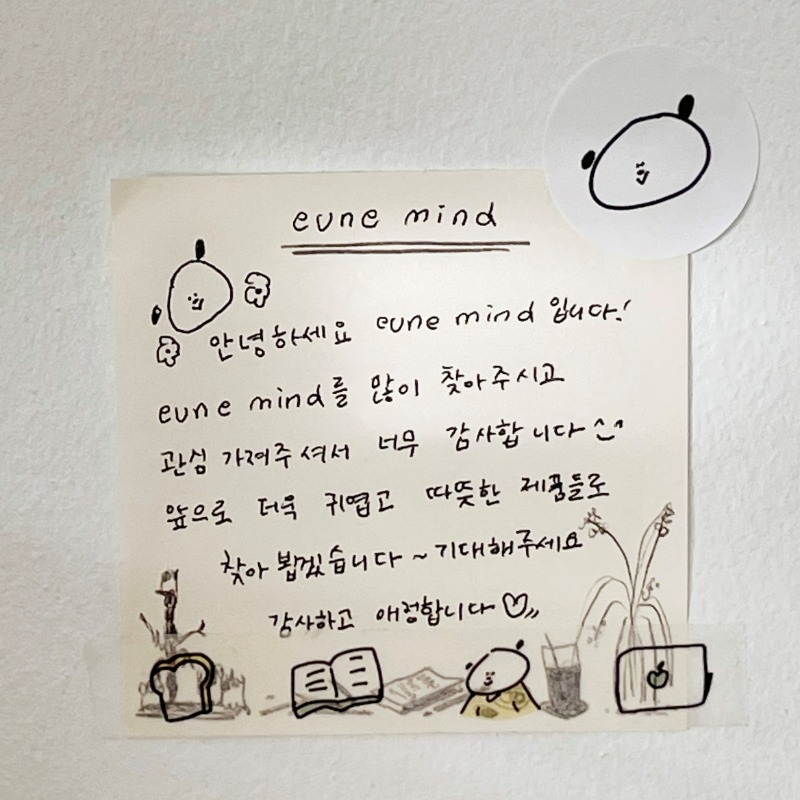 eune mind
안녕하세요 eune mind 입니다!
eune mind를 많이 찾아주시고
관심 가져주셔서 너무 감사합니다 ^^
앞으로 더욱 귀엽고 따뜻한 제품들로
찾아 뵙겠습니다 ~ 기대해주세요
감사하고 애정합니다 ♡,,